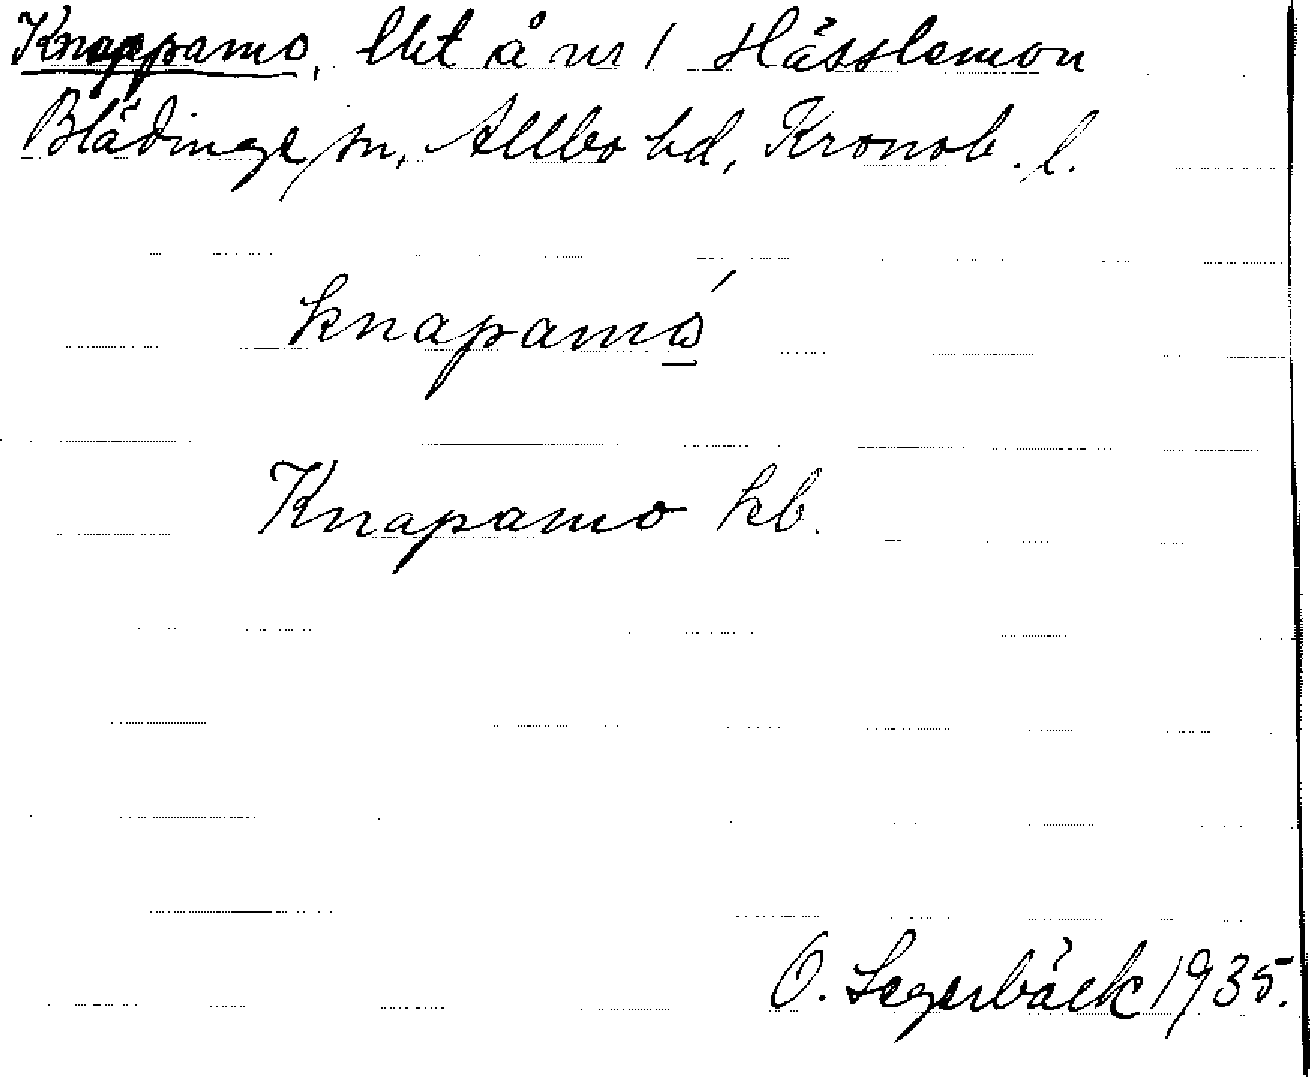 Knappamo, lht å nr 1 Hässlemon
Blädinge sn, Allbo hd, Kronob. l.
knapamó
Knapamo kb.
O. Segerbäck 1935.